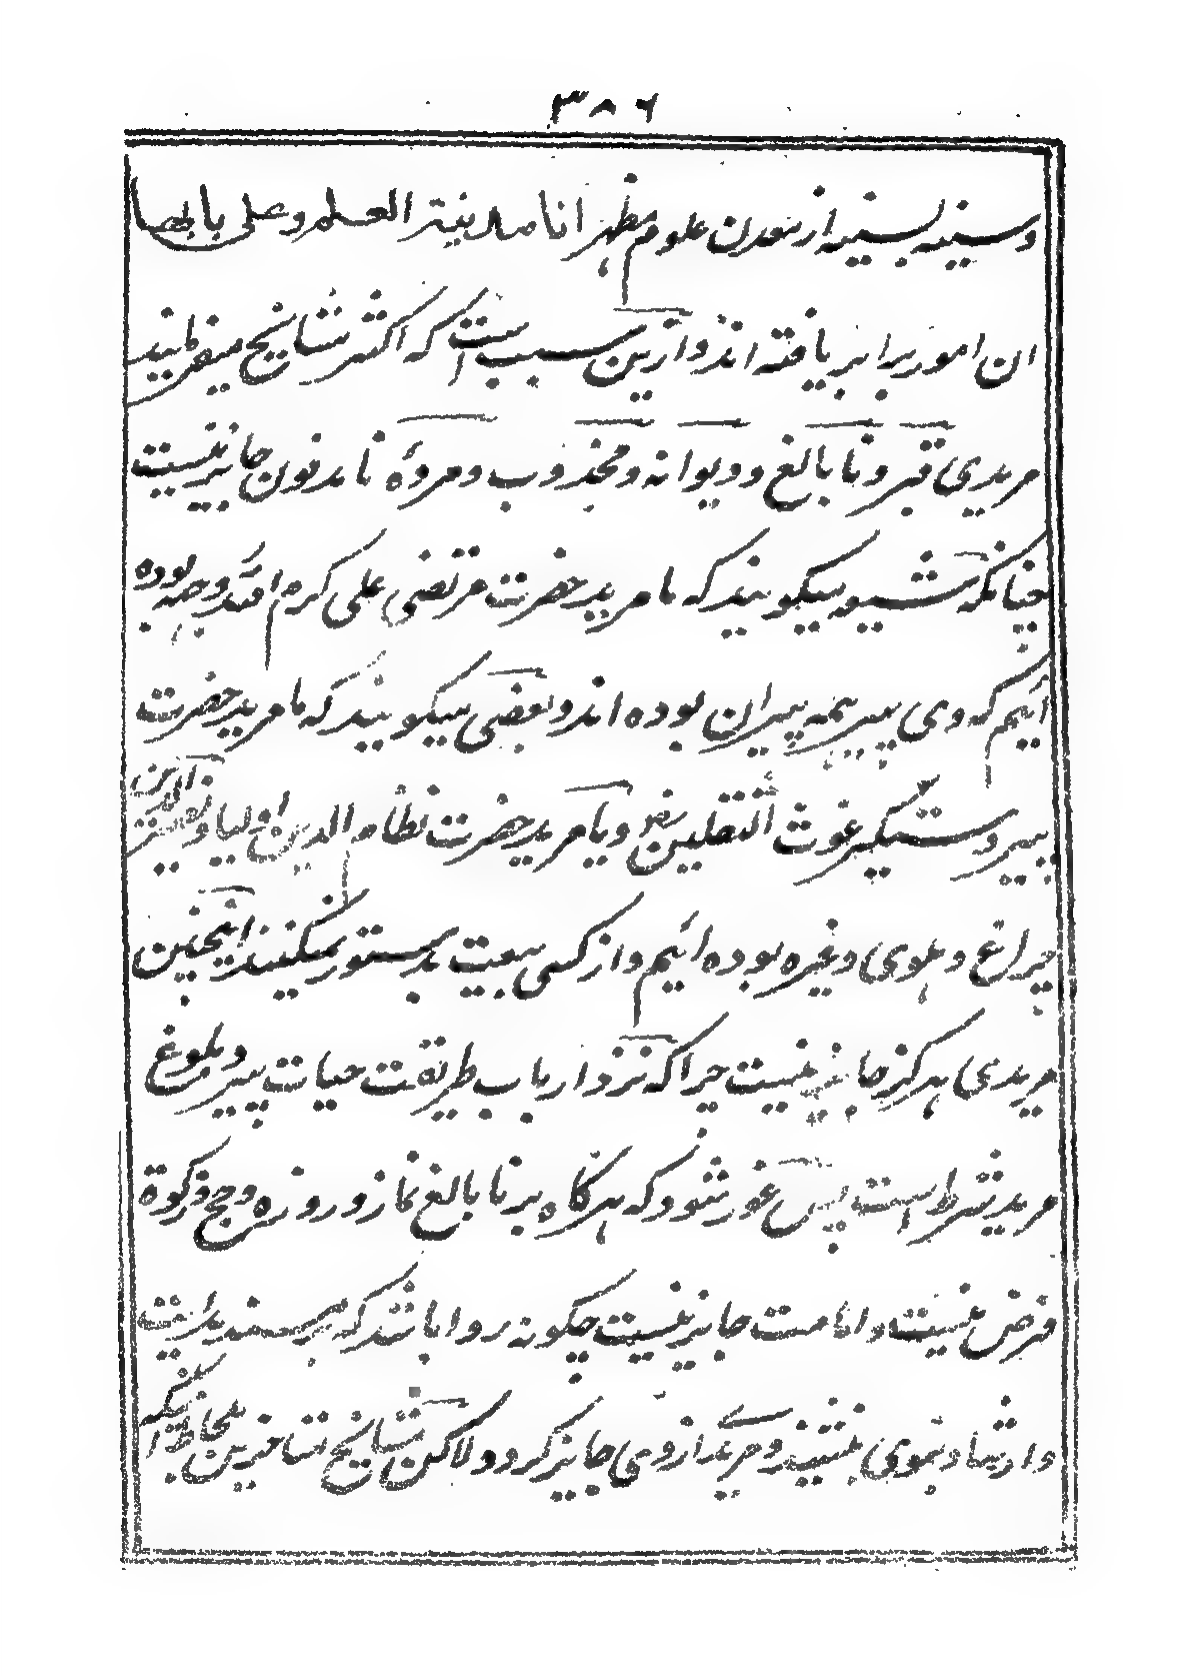 ۳۸۶
و سینه بسینه از معدن علوم مظهر انا مدینة العلم و علی بابها
ان امور برابر یافته اند و ازین سبب است که اکثر مشایخ میفرمایند
مریدی قبر و نا بالغ و دیوانه و مجذوب و مروهٔ نا مدفون جایز نیست
چنانکه شیعه میگویند که ما مرید حضرت مرتضی علی کرم الله وجهه بوده
ائیم که وی پیر همه پیران بوده اند و بعضی میگویند که ما مرید حضرت
پیر دستگیر غوث الثقلین و یا مرید حضرت نظام الدین اولیا و نصیر الدین
چراغ دهلوی و غیره بوده ائیم و از کسی بیعت بدستور نمیکنند اینچنین
مریدی هرگز جایز نیست چرا که نزد ارباب طریقت حیات پیر و بلوغ
مرید شرط است پس غور شود که هرگاه بر نا بالغ نماز و روزه و حج و زکوة
فرض نیست و امامت جایز نیست چگونه روا باشد که بر مسند هدایت
و ارشاد نبوی بنشیند و مریدی از وی جایز گردد لاکن مشایخ متاخرین بلحاظ اینکه